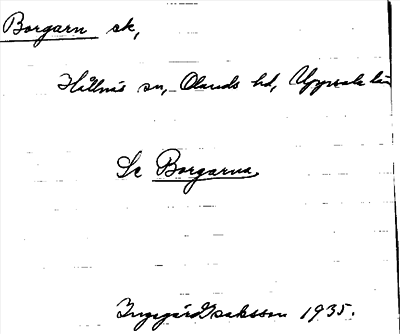 Borgarn sk,
Hållnäs sn, Olands hd, Uppsala län
Se Borgarna
Ingegärd Isaksson 1935.